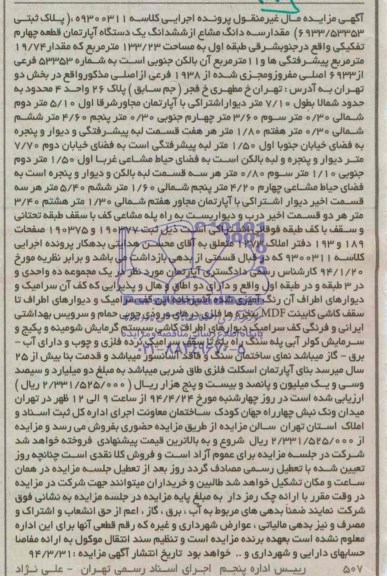 آگهی مزایده مال غیرمنقول پرونده اجرایی کلاسه ۹۳۰۰۳۱۱، (پلاک ثبتی
۶۹۳۳/۵۳۳۵۳) مقدار سه دانگ مشاع از ششدانگ یک دستگاه آپارتمان قطعه چهارم
تفکیکی واقع در جنوبشرقی طبقه اول به مساحت ۱۳۳/۲۳ مترمربع که مقدار ۱۹/۷۴
مترمربع پیشرفتگی ها و ۱۱ مترمربع آن بالکن جنوبی است به شماره ۵۳۳۵۳ فرعی
از ۶۹۳۳ اصلی مفروز و مجزی شده از ۱۹۳۸ فرعی از اصلی مذکور واقع در بخش دو
تهران به آدرس: تهران خ مطهری خ فجر (جم سابق) پلاک ۲۶ واحد ۴ محدود به
حدود شمالا بطول ۷/۱۰ متر دیوار اشتراکی با آپارتمان مجاور شرقا اول ۵/۱۰ متر دوم
شمالی ۰/۳۰ متر سوم ۳/۶۰ متر چهارم جنوبی ۰/۳۰ متر پنجم ۴/۶۰ متر ششم
شمالی ۰/۳۰ متر هفتم ۱/۸۰ متر هر هفت قسمت لبه پیشرفتگی و دیوار و پنجره
به فضای خیابان جنوبا اول ۱/۵۰ متر لبه پیشرفتگی است به فضای خیابان دوم ۷/۷۰
متر دیوار و پنجره و لبه بالکن است به فضای حیاط مشاعی غربا اول ۱/۵۰ متر دوم
جنوبی ۱/۱۰ متر سوم ۰/۸۰ متر هر سه قسمت لبه بالکن و دیوار و پنجره است به
فضای حیاط مشاعی چهارم ۴/۲۰ متر پنجم شمالی ۱/۶۰ متر ششم ۵/۴۰ متر هر سه
قسمت اخیر دیوار اشتراکی با آپارتمان مجاور هفتم شمالی ۱/۳۰ متر هشتم ۳/۴۰
متر هر دو قسمت اخیر درب و دیواریست به راه پله مشاعی کف با سقف طبقه تحتانی
و سقف با کف طبقه فوقانی اشتراکی است ذیل ثبت ۱۹۰۳۷۷ و ۱۹۰۳۷۵ صفحات
۱۸۹ و ۱۹۳ دفتر املاک متعلق به آقای هدایتی بدهکار پرونده اجرایی
کلاسه ۹۳۰۰۳۱۱ که در قبال قسمتی از دهی بازداشت می باشد و برابر نظریه مورخ
۹۴/۱/۲۰ کارشناس رسمی دادگستری آپارتمان مورد نظر در یک مجموعه ده واحدی و
در ۳ طبقه و در طبقه اول واقع و دارای دو اطاق و هال و پذیرایی که کف آن سرامیک و
دیوارهای اطراف آن رنگ آمیزی شده آشپزخانه آن کف سرامیک و دیوارهای اطراف تا
سقف کاشی کابینت MDF پنجره ها فلزی درهای ورودی چوبی حمام و سرویس بهداشتی
ایرانی و فرنگی کف سرامیک دیوارهای اطراف کاشی سیستم گرمایش شومینه و پکیج و
سرمایش کولر آبی پله سنگ راه پله تا سقف سرامیک نرده فلزی و چوب و دارای آب -
برق - گاز میباشد نمای ساختمان سنگ و فاقد آسانسور میباشد و قدمت بنا بیش از ۲۵
سال میرسد بنای آپارتمان اسکلت فلزی طاق ضربی میباشد به مبلغ دو میلیارد و سیصد
وسی و یک میلیون و پانصد و بیست و پنج هزار ریال (۲/۳۳۱/۵۲۵/۰۰۰ ریال)
ارزیابی شده است در روز چهارشنبه مورخ ۹۴/۴/۲۴ از ساعت ۹ الی ۱۲ ظهر در تهران
میدان ونک نبش چهارراه جهان کودک ساختمان معاونت اجرای اداره کل ثبت اسناد و
املاک استان تهران سالن مزایده از طریق مزایده حضوری بفروش می رسد و مزایده
از ۲/۳۳۱/۵۲۵/۰۰۰ ریال شروع و به بالاترین قیمت پیشنهادی فروخته خواهد شد
شرکت در جلسه مزایده برای عموم آزاد است و فروش کلا نقدی است چنانچه روز
تعیین شده با تعطیل رسمی مصادف گردد روز بعد از تعطیل جلسه مزایده در همان
ساعت و مکان تشکیل خواهد شد طالبین و خریداران میتوانند جهت شرکت در مزایده
در وقت مقرر با ارائه چک رمز دار به مبلغ پایه مزایده در جلسه مزایده به نشانی فوق
شرکت نمایند ضمناً بدهی های مربوط به آب، برق، گاز، اعم از حق انشعاب و اشتراک و
مصرف و نیز بدهی مالیاتی، عوارض شهرداری و غیره که رقم قطعی آنها برای این اداره
معلوم نشده است بعهده برنده مزایده است و تنظیم سند انتقال موکول به ارائه مفاصا
حسابهای دارایی و شهرداری و .. خواهد بود تاریخ انتشار آگهی مزایده: ۹۴/۳/۳۱
۵۰۷ رییس اداره پنجم اجرای اسناد رسمی تهران - علی نژاد